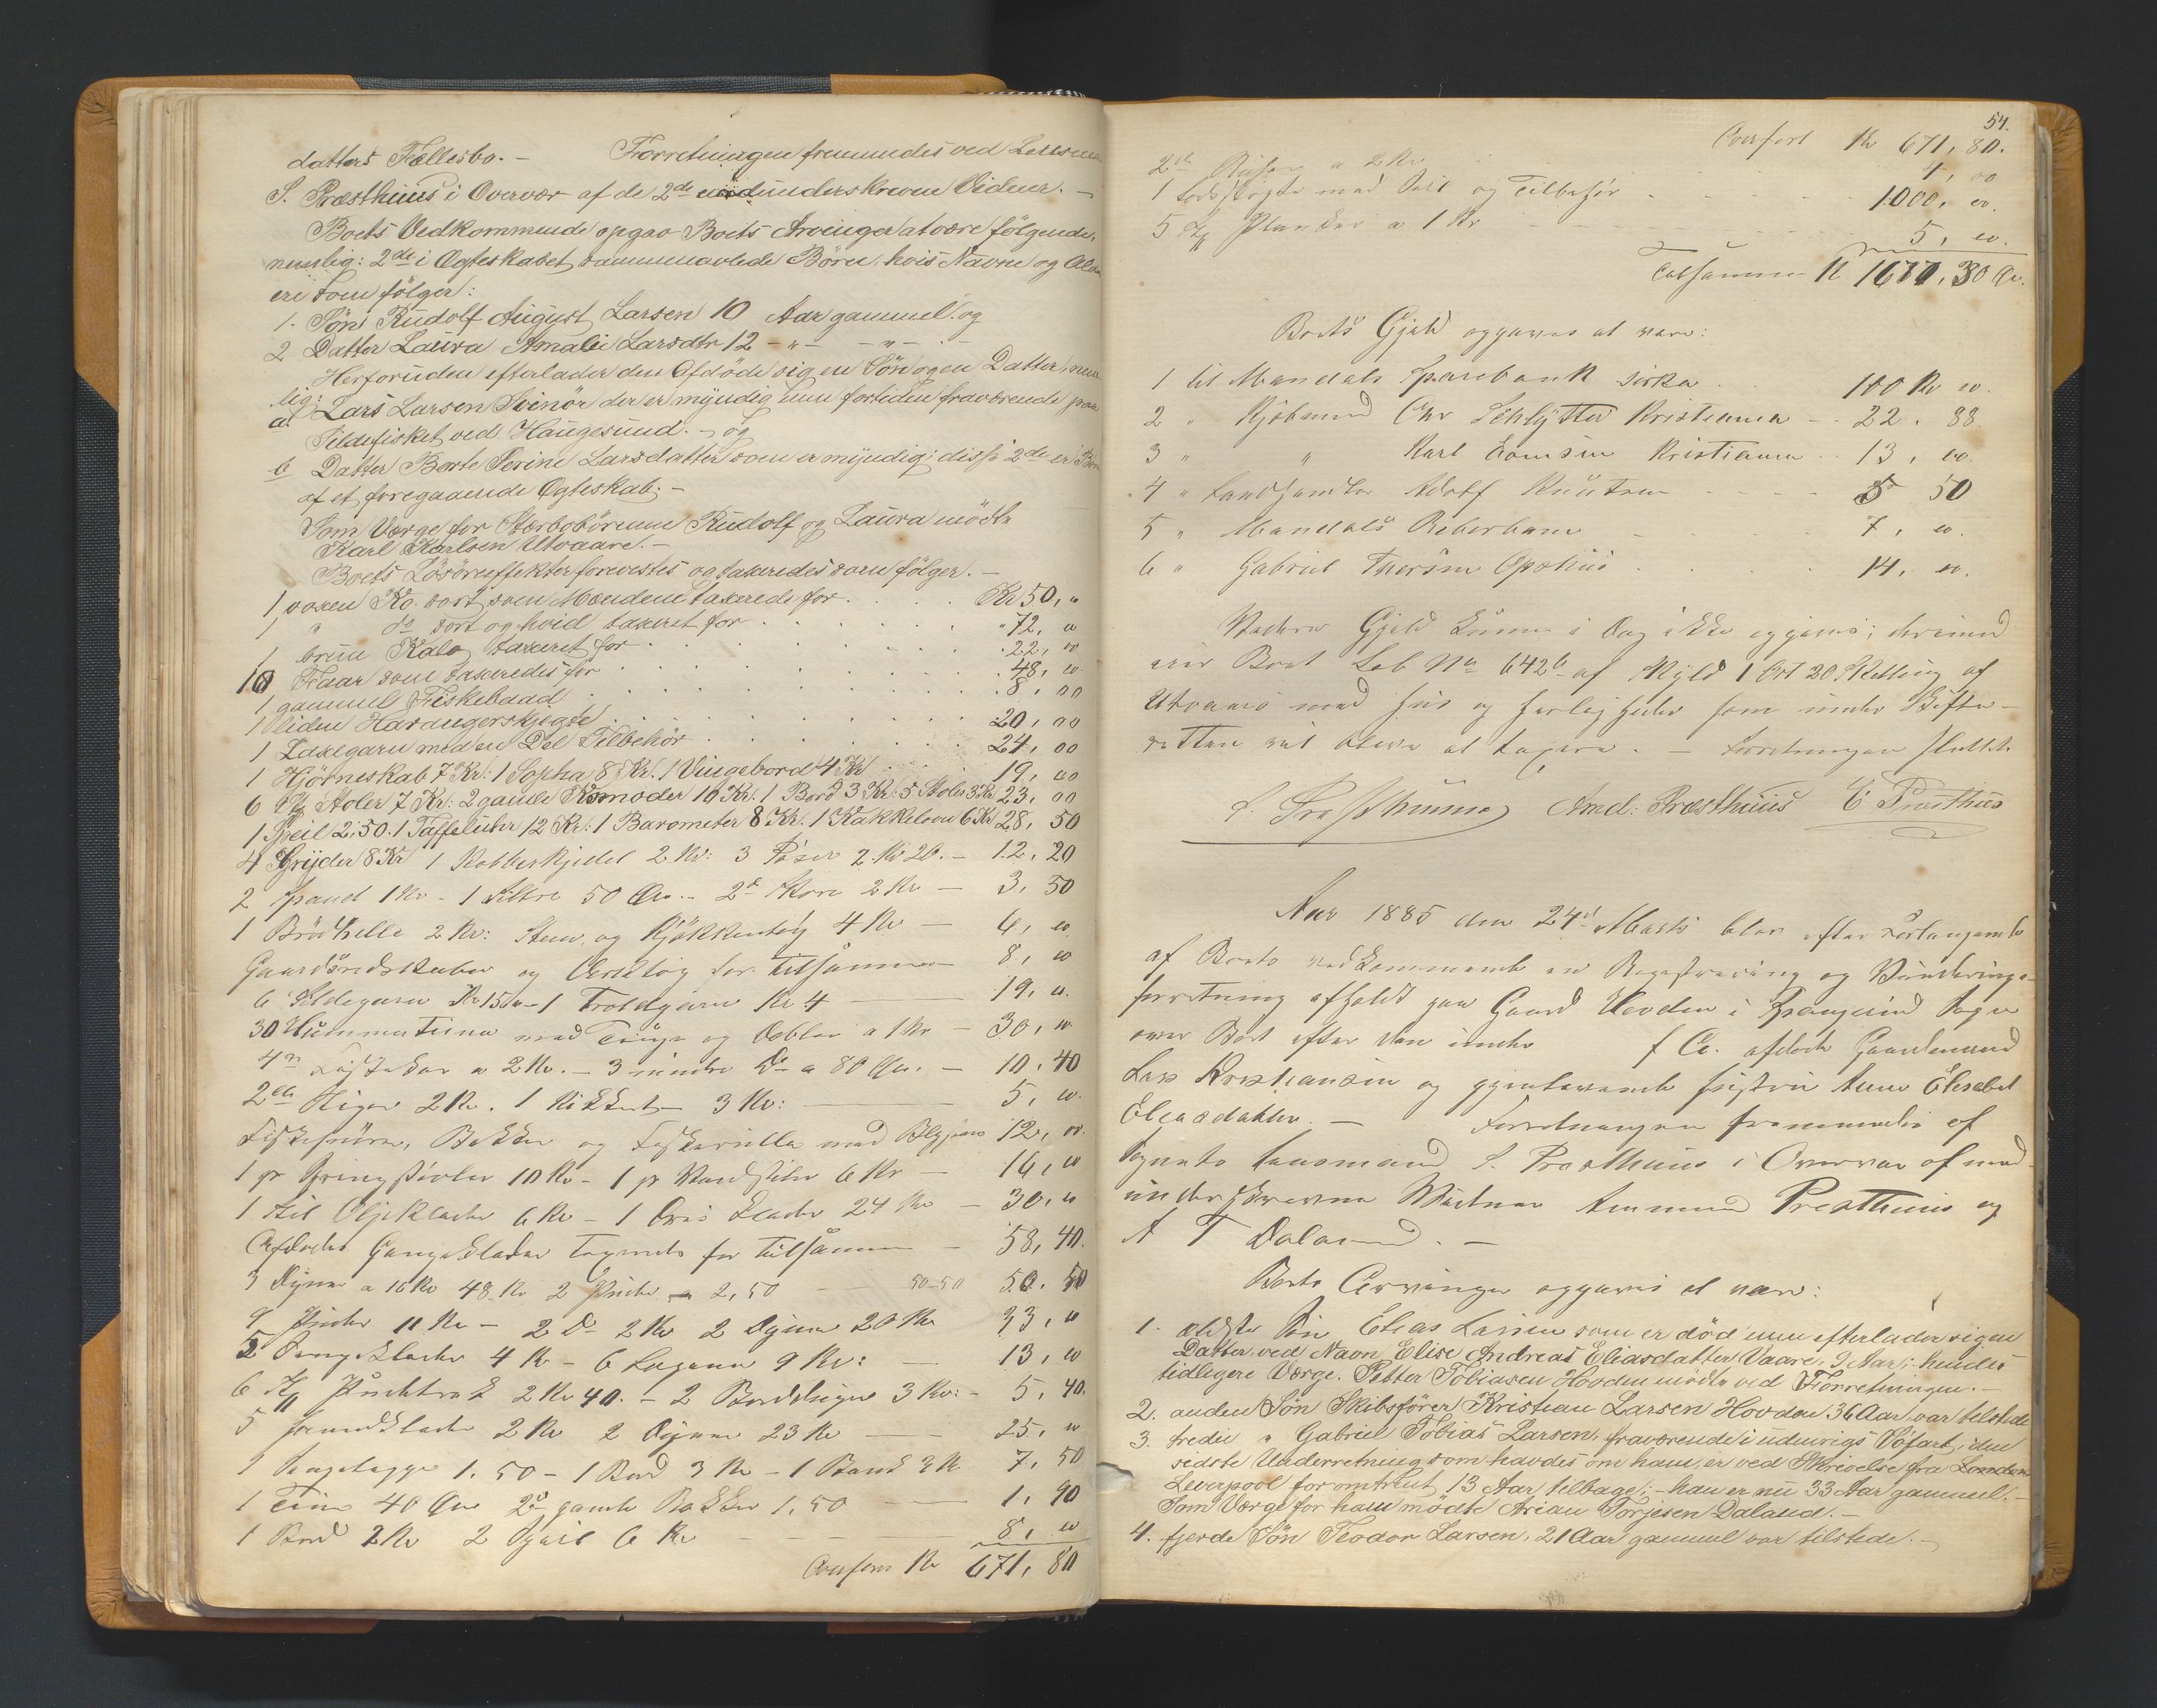 datters Fællesbo. — Forretningen fremmedes ved Lensm
S. Præsthuus i Overvær af de 2de medunderskrevne Vidner. —
Boets Vedkommende opgav Boets Arvinger at være følgende,
nemlig: 2de i Ægteskabet sammenavlede Børn, hvis Navne og Ald
ere som følger:
1. Søn Rudolf August Larsen 10 Aar gammel. og
2 Datter Laura Amalie Larsdtr 12 — " — — " —
Herforuden efterlader den Afdøde sig en Søn og en Datter, nem
lig:
a. Lars Larsen Svinør der er myndig men fortiden fraværende paa
Sildefisket ved Haugesund. — og
b Datter Berte Serine Larsdatter som er myndig; disse 2de er Børn
af et foregaaende Ægteskab. —
Som Værge for Stervbobørnene Rudolf og Laura mødte
Karl Karlsen Utvaare. —
Boets Løsøreeffekter forevistes og taxeredes som følger. —
1 voxen Ko sort som Mændene taxerede for . . . Kr 50, "
1 " do sort og hvid taxeret for . . . " 72, "
1 brun Kalv taxeret for . . . 22, 00
10 Faar som taxeredes for . . . 48, 00
1 gammel Fiskebaad . . . 8, 00
1 liden Harangerskjegte . . . 20, 00
1 Laxegarn med en Del Tilbehør . . . 24, 00
1 Hjørneskab 7 Kr: 1 Sopha 8 Kr. 1 Vingebord 4 Kr . . . 19, 00
6 Stk Stoler 7 Kr: 2 gamle Komoder 10 Kr: 1 Bord 3 Kr: 5 Stoler 3 Kr 23, 00
1 Speil 2,50. 1 Taffeluhr 12 Kr: 1 Barometer 8 Kr. 1 Kakkelovn 6 Kr 28, 50
4 Gryder 8 Kr 1 Kobberkjedel 2 Kr: 3 Pøser 2 Kr 20. — 12, 20
2 Spand 1 Kr - 1 Filtre 50 Øre. 2de Kore 2 Kr — 3, 50
1 Brødhelle 2 Kr: Sten og Kjøkkentøy 4 Kr — 6, 00
Gaardsredskaber og Verktøy for tilsammen 8, 00
6 Sildegarn Kr 15,00 - 1 Troldgarn Kr 4 — 19, 00
30 Hummertiner med Touge og Dobler a 1 Kr — 30, 00
4re a 2 Kr. — 3 mindre Do a 80 Øre. — 10, 40
2de 2 Kr. 1 Kikkert 3 Kr: — 5, 00
Fiskesnører, Bakker og 12, 00
1 pr 10 Kr - 1 pr 6 Kr — 16, 00
1 Sæt Oljeklæder 6 Kr - 1 klæder 24 Kr — 30, 00
Afdødes Gangklæder for tilsammen — 58, 40.
3 Dyner a 16 Kr 48 Kr 2 Puder a 2,50 50-50 50. 50
9 Puder 11 Kr — 2 Do 2 Kr 2 Dyner 20 Kr 33, 00
5 Sengklæder 4 Kr - 6 Lagener 9 Kr: — 13, 00
6 Stk Pudetræk 2 Kr 40. - 2 Bordduger 3 Kr: - 5, 40.
5 Haandklæder 2 Kr 2 Dyner 23 Kr — 25, 00
1 Sengetæppe 1,50 - 1 Bord 3 Kr - 1 Bænk 3 Kr 7, 50
1 Tine 40 Øre 2de gamle Bakker 1,50 — 1, 90
1 Bord 2 Kr 2 Speil 6 Kr 8, 00
Overføres Kr 671, 80
54.
Overført Kr 671, 80.
2de Ruser a 2 Kr 4, 00
1 Lodsskøyte med Seil og Tilbehør . . . 1000, 00.
5 Stk Planker a 1 Kr 5, 00.
Tilsammen Kr 1680, 80 Øre.
Boets Gjeld opgaves at være:
1 til Mandals Sparebank sirka . . 100 Kr 00
2 " Kjøbmand Chr Schlytter Kristiania — 22. 88
3 " " Karl Kristiania . . 13, 00.
4 " Landhandler Adolf Knutsen . . . 5 50
5 " Mandals Reberbane . . . 7, 00
6 " Gabriel . . . 14, 00.
Videre Gjeld kunne i Dag ikke opgives; derimod
eier Boet Løb No 642 b af Skyld 1 Ort 20 Skilling af
Utvaare med Hus og Herligheder som under Skifte-
retten vil blive at taxere. — Forretningen sluttet.
S. Præsthuus Amd: Præsthuus E Præsthus
Aar 1885 den 24de Marts blev efter Forlangende
af Boets vedkommende en Registrerings og Vurderings-
forretning afholdt paa Gaard Hovden i Spangereid Sogn
over Boet efter den under f Ce. afdøde Gaardmand
Lars Kristiansen og gjenlevende Hustru Anne Elisabet
Eleasdatter. — Forretningen fremmedes af
Sognets Lensmand S. Præsthuus i Overvær af med-
underskrevne Vidner Ammund Presthuus og
A T Daland. —
Boets Arvinger opgaves at være:
1. ældste Søn Elias Larsen som er død men efterlader sig en
Datter ved Navn Elise Andreas Eliasdatter Vaare, 9 Aar; hendes
tidligere Værge. Petter Tobiasen Hovden mødte ved Forretningen. —
2. anden Søn Skibsfører Kristian Larsen Hovden 36 Aar, var tilstede
3. tredie " Gabriel Tobias Larsen, fraværende i udenrigs Søfart, den
sidste Underretning som havdes om ham, er ved Skrivelse fra London
Leverpool for omtrent 13 Aar tilbage; — han er nu 33 Aar gammel. —
Som Værge for ham mødte Arian Torjesen Daland. —
4. fjerde Søn Teodor Larsen, 21 Aar gammel var tilstede. —